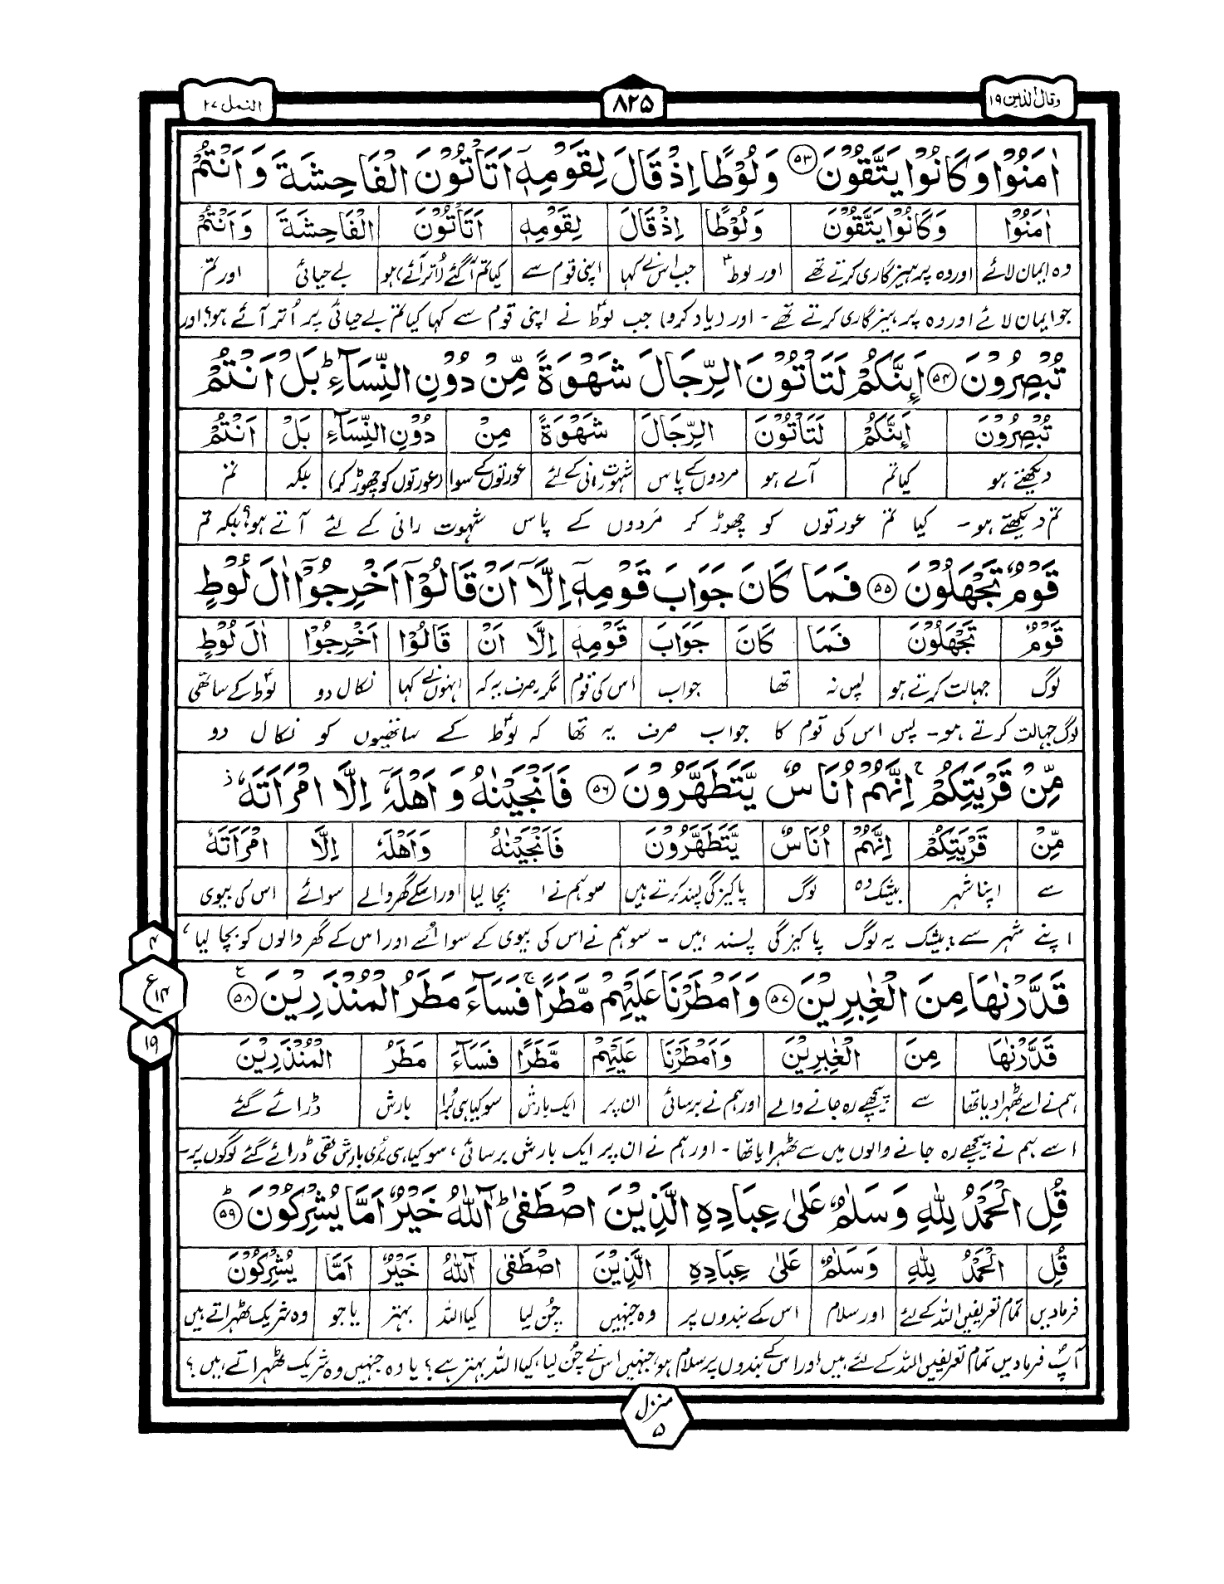 وقال الذین ۱۹
۸۲۵
النمل ۲۷
اٰمَنُوْا وَكَانُوْا يَتَّقُوْنَ ﴿۵۳﴾ وَلُوْطًا اِذْ قَالَ لِقَوْمِهٖۤ اَتَاْتُوْنَ الْفَاحِشَةَ وَ اَنْتُمْ
اٰمَنُوْا وَكَانُوْا يَتَّقُوْنَ وَلُوْطًا اِذْ قَالَ لِقَوْمِهٖ اَتَاْتُوْنَ الْفَاحِشَةَ وَاَنْتُمْ
وہ ایمان لائے اور وہ پرہیزگاری کرتے تھے اور لوطؑ جب اس نے کہا اپنی قوم سے کیا تم آگئے (اُتر آئے) ہو بےحیائی اور تم
جو ایمان لائے اور وہ پرہیزگاری کرتے تھے۔ اور (یاد کرو) جب لوطؑ نے اپنی قوم سے کہا کیا تم بےحیائی پر اُتر آئے ہو؟ اور
تُبْصِرُوْنَ ﴿۵۴﴾ اَىِٕنَّكُمْ لَتَاْتُوْنَ الرِّجَالَ شَهْوَةً مِّنْ دُوْنِ النِّسَآءِ ؕ بَلْ اَنْتُمْ
تُبْصِرُوْنَ اَىِٕنَّكُمْ لَتَاْتُوْنَ الرِّجَالَ شَهْوَةً مِنْ دُوْنِ النِّسَآءِ بَلْ اَنْتُمْ
دیکھتے ہو کیا تم آتے ہو مردوں کے پاس شہوت رانی کے لئے عورتوں کے سوا (عورتوں کو چھوڑ کر) بلکہ تم
تم دیکھتے ہو۔ کیا تم عورتوں کو چھوڑ کر مَردوں کے پاس شہوت رانی کے لئے آتے ہو؟ بلکہ تم
قَوْمٌ تَجْهَلُوْنَ ﴿۵۵﴾ فَمَا كَانَ جَوَابَ قَوْمِهٖۤ اِلَّاۤ اَنْ قَالُوْۤا اَخْرِجُوْۤا اٰلَ لُوْطٍ
قَوْمٌ تَجْهَلُوْنَ فَمَا كَانَ جَوَابَ قَوْمِهٖ اِلَّا اَنْ قَالُوْا اَخْرِجُوْا اٰلَ لُوْطٍ
لوگ جہالت کرتے ہو پس نہ تھا جواب اس کی قوم مگر۔صرف یہ کہ انہوں نے کہا نکال دو لوطؑ کے ساتھی
لوگ جہالت کرتے ہو۔ پس اس کی قوم کا جواب صرف یہ تھا کہ لوطؑ کے ساتھیوں کو نکال دو
مِّنْ قَرْيَتِكُمْ ۚ اِنَّهُمْ اُنَاسٌ يَّتَطَهَّرُوْنَ ﴿۵۶﴾ فَاَنْجَيْنٰهُ وَ اَهْلَهٗۤ اِلَّا امْرَاَتَهٗ ؗ
مِّنْ قَرْيَتِكُمْ اِنَّهُمْ اُنَاسٌ يَّتَطَهَّرُوْنَ فَاَنْجَيْنٰهُ وَاَهْلَهٗ اِلَّا امْرَاَتَهٗ
سے اپنا شہر بیشک وہ لوگ پاکیزگی پسند کرتے ہیں سو ہم نے ا بچا لیا اور اسکے گھر والے سوائے اس کی بیوی
اپنے شہر سے؛ بیشک یہ لوگ پاکیزگی پسند ہیں۔ سو ہم نے اس کی بیوی کے سوائے اور اس کے گھر والوں کو بچا لیا،
قَدَّرْنٰهَا مِنَ الْغٰبِرِيْنَ ﴿۵۷﴾ وَاَمْطَرْنَا عَلَيْهِمْ مَّطَرًا ۚ فَسَآءَ مَطَرُ الْمُنْذَرِيْنَ ﴿۵۸﴾ ع
۴
ع ۱۴
۱۹
قَدَّرْنٰهَا مِنَ الْغٰبِرِيْنَ وَاَمْطَرْنَا عَلَيْهِمْ مَّطَرًا فَسَآءَ مَطَرُ الْمُنْذَرِيْنَ
ہم نے اسے ٹھہرا دیا تھا سے پیچھے رہ جانے والے اور ہم نے برسائی ان پر ایک بارش سو کیا ہی بُرا بارش ڈرائے گئے
اسے ہم نے پیچھے رہ جانے والوں میں سے ٹھہرایا تھا۔ اور ہم نے ان پر ایک بارش برسائی، سو کیا ہی بُری بارش تھی ڈرائے گئے لوگوں پر۔
قُلِ الْحَمْدُ لِلّٰهِ وَ سَلٰمٌ عَلٰى عِبَادِهِ الَّذِيْنَ اصْطَفٰى ؕ آٰللّٰهُ خَيْرٌ اَمَّا يُشْرِكُوْنَ ﴿۵۹﴾ ؕ
قُلِ الْحَمْدُ لِلّٰهِ وَسَلٰمٌ عَلٰى عِبَادِهِ الَّذِيْنَ اصْطَفٰى آٰللّٰهُ خَيْرٌ اَمَّا يُشْرِكُوْنَ
فرما دیں تمام تعریفیں اللہ کے لئے اور سلام اس کے بندوں پر وہ جنہیں چُن لیا کیا اللہ بہتر یا جو وہ شریک ٹھہراتے ہیں
آپؐ فرما دیں تمام تعریفیں اللہ کے لئے ہیں اور اس کے بندوں پر سلام ہو جنہیں اس نے چُن لیا، کیا اللہ بہتر ہے؟ یا وہ جنہیں وہ شریک ٹھہراتے ہیں؟
منزل ۵